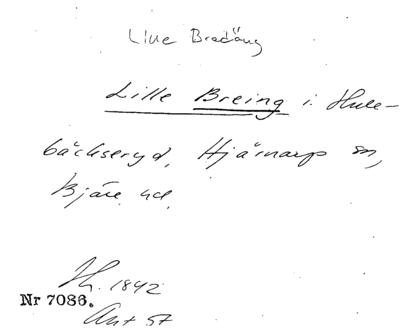 Lille Bredäng
Lille Breing i Hule-
bäckseryd, Hjärnarp sn,
Bjäre hd.
Th. 1842
Nr 7086.
Ant 57